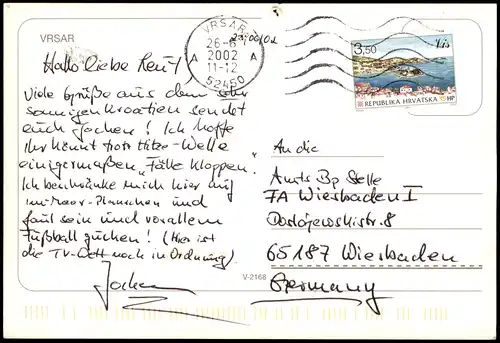 VRSAR
VRSAR
26-6
2002
11-12
52450
A A
3,50
Vis
REPUBLIKA HRVATSKA HP
Hallo liebe Leut!
Viele Grüße aus dem sehr
sonnigen Kroatien sendet
euch Jochen! Ich hoffe
Ihr könnt trotz Hitze-Welle
einigermaßen „Fälle kloppen".
Ich beschränke mich hier auf
im-Meer-Planschen und
faul sein und vorallem
Fußball gucken! (Hier ist
die TV-Welt noch in Ordnung).
Jochen
V-2168
An die
Amts Bp Stelle
FA Wiesbaden I
Dostojewskistr. 8
65187 Wiesbaden
Germany